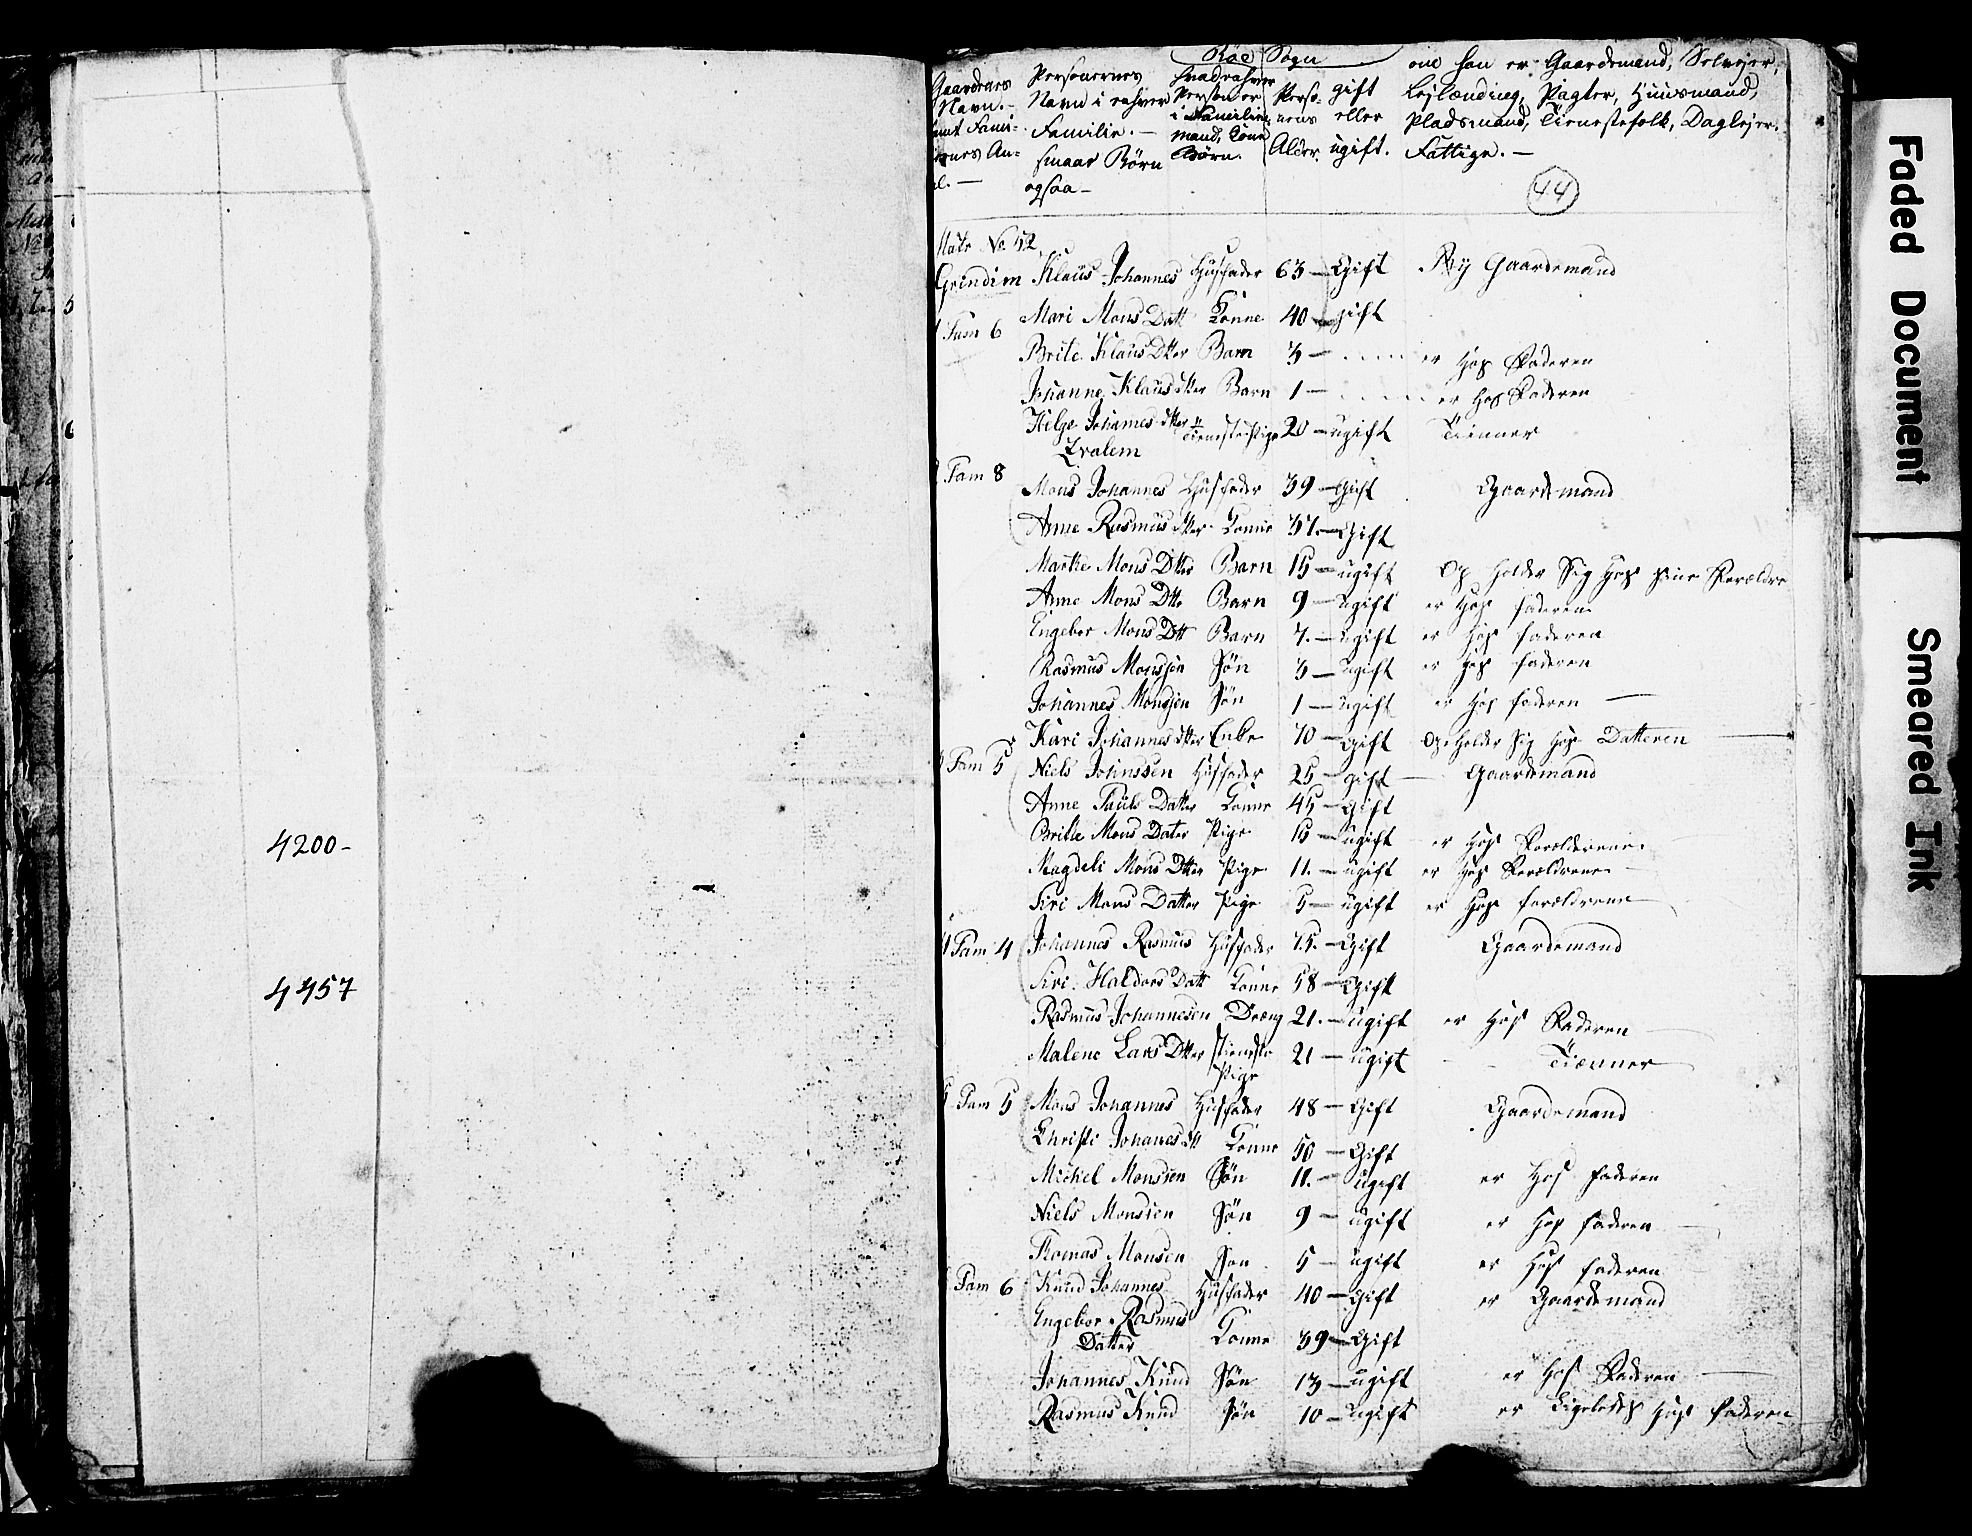 4200-
4457
Röe Sogn
Gaardenes Personernes hvad enhver om han er Gaardemand, Selvejer,
Navn.- Navn i enhver Person er Perso- gift Lejlænding, Pagter, Huusmand,
samt Fami- Familie.- i Familien nens eller Pladsmand, Tienestefolk, Daglejer.
liernes An- smaae Børn mand, Kone Alder. ugift. Fattige.-
tal.- ogsaa- Børn.
44
Matr No 42
Grindim Klaus Johannes Husfader 63 - Gift Ny Gaardemand
Mari Mons Datt Konne 40 - gift
1 Fam 6
Brite Klaus Dtter Barn 3 - er hos Faderen
Johanne Klaus dtter Barn 1 - er hos Faderen
Helge Johannes dtter Tieneste Pige 20 - ugift Tienner
Kvalem
Fam 8
Mons Johannes Husfader 39 - Gift Gaardemand
Anne Rasmus dtter Konne 37. - Gift
Marthe Mons Dtter Barn 15 - ugift Op holder Sig hos sine Forældre
Anne Mons Dtte Barn 9 - ugift er hos faderen
Engebor Mons Dtt Barn 7. - ugift er hos faderen
Rasmus Monssen Søn 3 - ugift er hos faderen
Johannes Monssen Søn 1 - ugift er hos faderen -
Kari Johannes dtter Enke 70 - Gift Opholder Sig hos Datteren
Fam 5 Niels Johnssen Husfader 25 - gift - Gaardemand
Anne Pauls Datter Konne 45 - Gift
Britte Mons Dater Pige 15 - ugift er hos Forælderene.
Magdeli Mons Dtter Pige 11. - ugift er hos Forældrene -
Siri Mons Datter Pige 5 - ugift er hos forældrene
4 Fam 4 Johannes Rasmus Husfader 75. - Gift Gaardemand
Siri Haldors Datt Konne 58 - Gift
Rasmus Johannesen Dreng 21. - ugift er hos Faderen
Malene Lars Dtter Tieneste 21 - ugift Tienner
Pige
5 Fam 5 Mons Johannes Husfader 48 - Gift Gaardemand
Christi Johanes dtt Konne 50 - Gift
Mickel Monsen Søn 11. - ugift er hos faderen
Niels Monsen Søn 9 - ugift er hos faderen
Thomas Monsen Søn 5 - ugift er hos faderen
Fam 6 Knud Johannes Husfader 40 - Gift er Gaardemand
Engebor Rasmus
Datter Konne 39 - Gift
Johannes Knud Søn 13 - ugift er hos Faderen
Rasmus Knud Søn 10 - ugift er Ligeledes hos Faderen
Faded Document
Smeared Ink